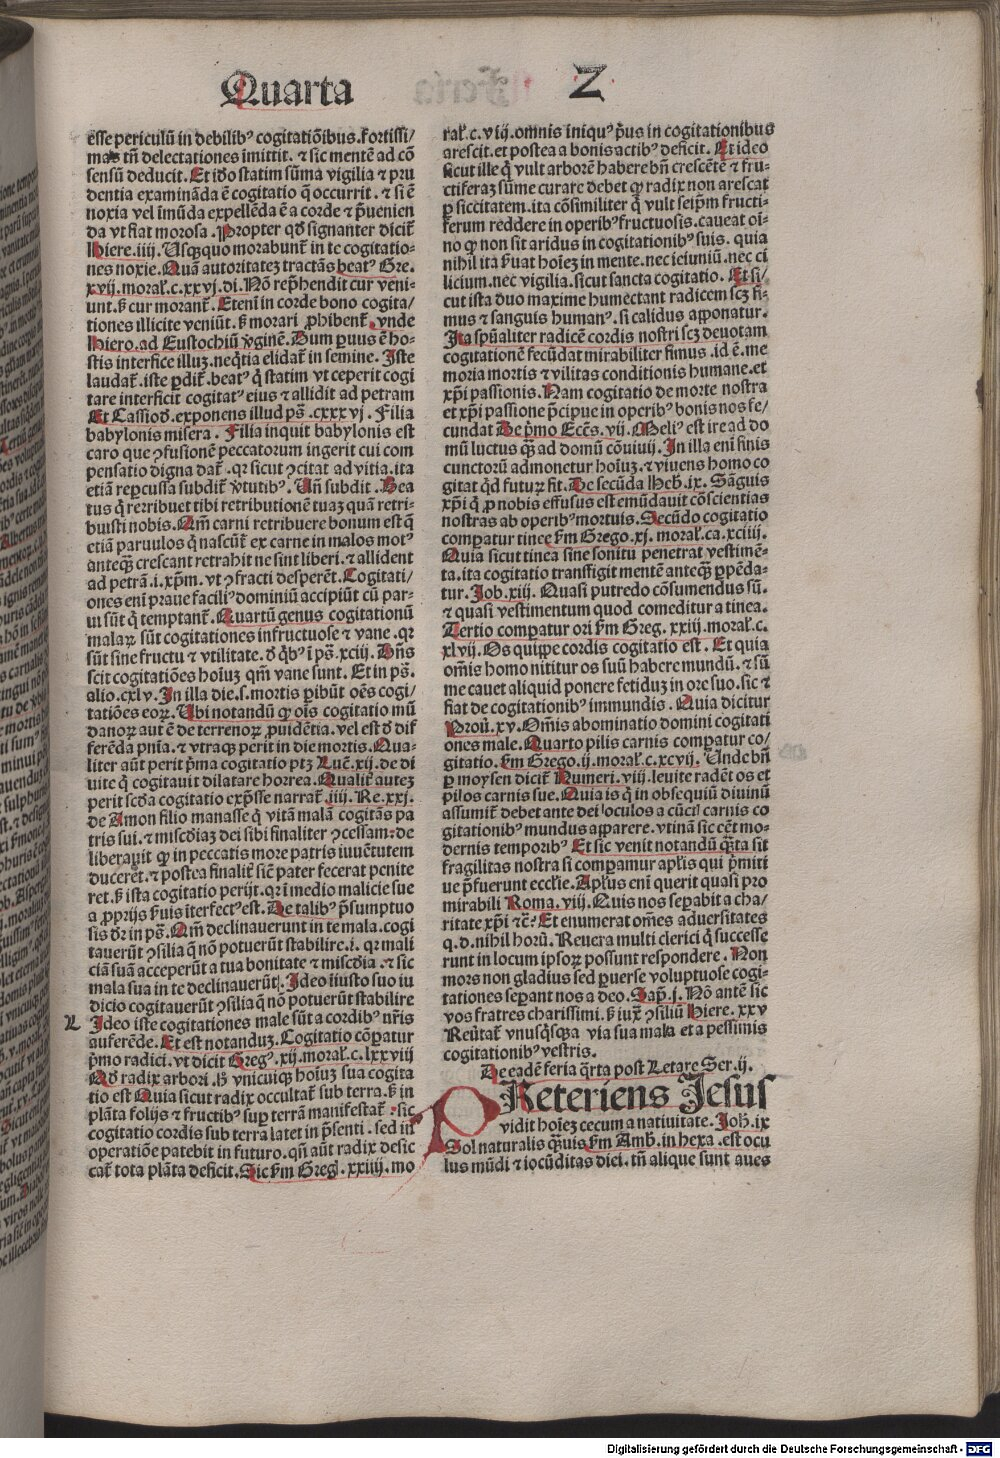 Quarta
Z
esse periculū in debilibꝰ cogitatiōibus. fortissi/
mas tn̄ delectationes imittit. ⁊ sic mentē ad cō
sensū deducit. Et iđo statim sūma vigilia ⁊ pru
dentia examināda ē cogitatio q̄ occurrit. ⁊ si ē
noxia vel īmūda expellēda ē a corde ⁊ p̄uenien
da vt fiat morosa. Propter qđ signanter dicit̄
Hiere. iiij. Usq̄quo morabunt̄ in te cogitatio-
nes noxie. Quā autoritatez tractās beatꝰ Gre.
xvij. moral̄. c. xxvj. di. Nō rep̄hendit cur veni-
unt. s̄ cur morant̄. Etenī in corde bono cogita/
tiones illicite veniūt. s̄ morari ꝓhibent̄. vnde
Hiero. ad Eustochiū v̄ginē. Dum ꝑuus ē ho-
stis interfice illuz. neq̄tia elidat̄ in semine. Iste
laudat̄. iste ꝑdit̄. beatꝰ q̄ statim vt ceperit cogi
tare interficit cogitatꝰ eius ⁊ allidit ad petram
Et Cassiođ. exponens illud ps̄. cxxxvj. Filia
babylonis misera. Filia inquit babylonis est
caro que ꝯfusionē peccatorum ingerit cui com
pensatio digna dat̄. qꝛ sicut ꝯcitat ad vitia. ita
etiā reꝑcussa subdit̄ v̄tutibꝰ. Un̄ subdit. Bea
tus q̄ retribuet tibi retributionē tuaz quā retri-
buisti nobis. Qm̄ carni retribuere bonum est q̄
etiā paruulos q̄ nascūt̄ ex carne in malos motꝰ
anteq̄ꝫ crescant retrahit ne sint liberi. ⁊ allident
ad petrā. i. xp̄m. vt ꝯfracti desperēt. Cogitati/
ones enī praue faciliꝰ dominiū accipiūt cū par-
ui sūt q̄ temptant̄. Quartū genus cogitationū
malaꝝ sūt cogitationes infructuose ⁊ vane. qꝛ
sūt sine fructu ⁊ vtilitate. đ q̄bꝰ ī ps̄. xciij. Dn̄s
scit cogitatiōes hoīuz qm̄ vane sunt. Et in ps̄.
alio. cxlv. In illa die. s. mortis ꝑibūt oēs cogi/
tatiōes eoꝝ. Ubi notandū ꝙ oīs cogitatio mū
danoꝝ aut ē de terrenoꝝ ꝓuidētia. vel est đ dif
ferēda pn̄ia. ⁊ vtraqꝫ perit in die mortis. Qua-
liter aūt perit p̄ma cogitatio ptꝫ Luc̄. xij. de di
uite q̄ cogitauit dilatare horrea. Qualit̄ autez
perit scđa cogitatio exp̄sse narrat̄. iiij. Re. xxj.
de Amon filio manasse q̄ vitā malā cogitās pa
tris sui. ⁊ misc̄diaz dei sibi finaliter ꝯcessam. de
liberauit ꝙ in peccatis more patris iuuētutem
duceret. ⁊ postea finalit̄ sic̄ pater fecerat penite
ret. s̄ ista cogitatio perijt. qꝛ ī medio malicie sue
a ꝓprijs s̄uis īterfectꝰ est. De talibꝰ p̄sumptuo
sis dr̄ in ps̄. Qm̄ declinauerunt in te mala. cogi
tauerūt ꝯsilia q̄ nō potuerūt stabilire. i. qꝛ mali
ciā suā acceperūt a tua bonitate ⁊ misc̄dia. ⁊ sic
mala sua in te declinauerūt. Ideo iusto suo iu
dicio cogitauerūt ꝯsilia q̄ nō potuerūt stabilire
L Ideo iste cogitationes male sūt a cordibꝰ nr̄is
auferēde. Et est notanduz. Cogitatio cōꝑatur
p̄mo radici. vt dicit Gregꝰ. xij. moral̄. c. lxxviij
Qđ radix arbori. H̄ vnicuiqꝫ hoīuz sua cogita
tio est Quia sicut radix occultat̄ sub terra. s̄ in
plāta folijs ⁊ fructibꝰ suꝑ terrā manifestat̄. sic
cogitatio cordis sub terra latet in p̄senti. sed in
operatiōe patebit in futuro. qn̄ aūt radix desic
cat̄ tota plāta deficit. Sic s̄m Greḡ. xxiiij. mo
ral̄. c. vij. omnis iniquꝰ p̄us in cogitationibus
arescit. et postea a bonis actibꝰ deficit. Et ideo
sicut ille q̄ vult arborē habere bn̄ crescētē ⁊ fru-
ctiferaz sūme curare debet ꝙ radix non arescat
ꝑ siccitatem. ita cōsimiliter q̄ vult seip̄m fructi-
ferum reddere in operibꝰ fructuosis. caueat oī-
no ꝙ non sit aridus in cogitationibꝰ suis. quia
nihil ita s̄uat hoīez in mente. nec ieiuniū. nec ci
licium. nec vigilia. sicut sancta cogitatio. Et si/
cut ista duo maxime humectant radicem scꝫ fi-
mus ⁊ sanguis humanꝰ. si calidus apponatur.
Ita sp̄ualiter radicē cordis nostri scꝫ deuotam
cogitationē fecūdat mirabiliter fimus. id ē. me
moria mortis ⁊ vilitas conditionis humane. et
xp̄i passionis. Nam cogitatio de morte nostra
et xp̄i passione p̄cipue in operibꝰ bonis nos fe/
cundat De p̄mo Ecc̄s. vij. Meliꝰ est ire ad do
mū luctus q̄ꝫ ad domū cōuiuij. In illa enī finis
cunctorū admonetur hoīuz. ⁊ viuens homo co
gitat qđ futuꝝ sit. De secūda Heb̄. ix. Sāguis
xp̄i q̄ ꝓ nobis effusus est emūdauit cōscientias
nostras ab operibꝰ mortuis. Secūdo cogitatio
comꝑatur tinee s̄m Grego. xj. moral̄. ca. xciiij.
Quia sicut tinea sine sonitu penetrat vestimē-
ta. ita cogitatio transfigit mentē anteq̄ꝫ ꝑpēda-
tur. Job. xiij. Quasi putredo cōsumendus sū.
⁊ quasi vestimentum quod comeditur a tinea.
Tertio comꝑatur ori s̄m Greg. xxiij. moral̄. c.
xlvij. Os quippe cordis cogitatio est. Et quia
om̄is homo nititur os suū habere mundū. ⁊ sū
me cauet aliquid ponere fetiduz in ore suo. sic ⁊
fiat de cogitationibꝰ immundis. Quia dicitur
Prou̅. xv. Om̄is abominatio domini cogitati
ones male. Quarto pilis carnis comꝑatur co/
gitatio. s̄m Grego. ij. moral̄. c. xcvij. Unde bn̄
ꝑ moysen dicit̄ Numeri. viij. leuite radēt os et
pilos carnis sue. Quia is q̄ in obsequiū diuinū
assumit̄ debet ante dei oculos a cūct̄ carnis co
gitationibꝰ mundus apparere. vtinā sic eēt mo-
dernis temporibꝰ Et sic venit notandū q̄ꝫta sit
fragilitas nostra si comꝑamur apl̄is qui p̄miti
ue p̄fuerunt eccl̄ie. Apl̄us enī querit quasi pro
mirabili Roma. viij. Quis nos seꝑabit a cha/
ritate xp̄i ⁊c̄. Et enumerat om̄es aduersitates
q. d. nihil horū. Reuera multi clerici q̄ successe
runt in locum ipsoꝝ possunt respondere. Non
mors non gladius sed peruerse voluptuose cogi-
tationes seꝑant nos a deo. Sap̄. j. Nō antē sic
vos fratres charissimi. s̄ iux̄ ꝯsiliū Hiere. xxv
Reūtat̄ vnusq̄sqꝫ a via sua mala et a pessimis
cogitationibꝰ vestris.
De eadē feria q̄rta post Letare Ser. ij.
PReteriens Jesus
vidit hoīez cecum a natiuitate. Joh̄. ix
Sol naturalis q̄uis s̄m Amb̄. in hexa. est ocu
lus mūdi ⁊ iocūditas diei. tn̄ alique sunt aues
Digitalisierung gefördert durch die Deutsche Forschungsgemeinschaft - DFG